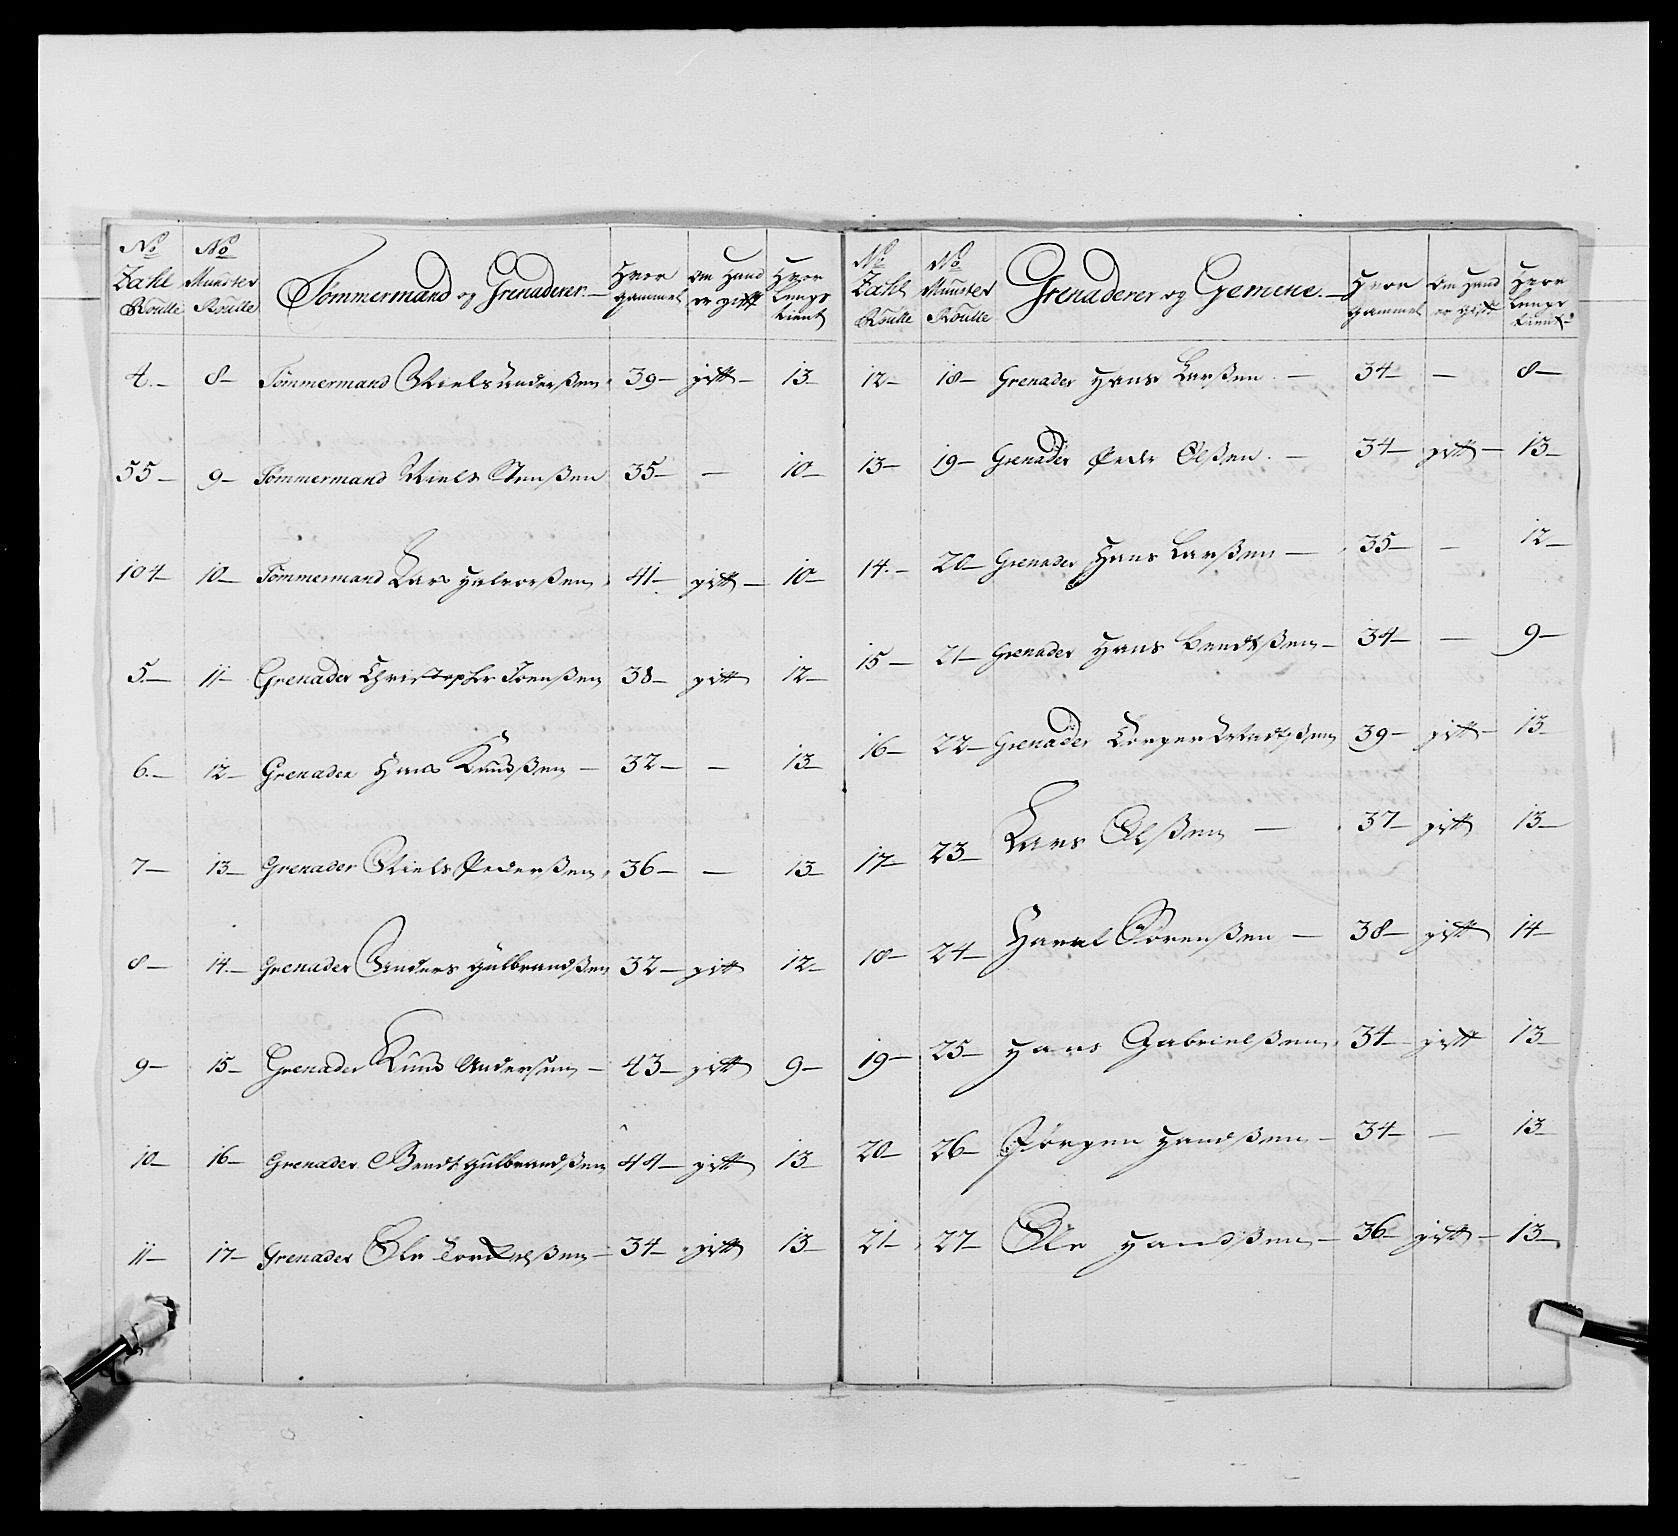 No Zahl Roulle | No Munster Roulle | Tømmermænd og Grenaderer | Hvor gammel | Om Hand er gift | Hvor Lenge tient
4 – 8 – Tømmermand Niels Anderßen 39 – gift – 13 –
55 – 9 – Tømmermand Niels Stenßen 35 – – 10 –
104 – 10 – Tømmermand Lars Halvorßen 41 – gift – 10 –
5 – 11 – Grenader Christopher Joenßen 38 – gift 12 –
6 – 12 – Grenader Hans Knudßen – 32 – – 13 –
7 – 13 – Grenader Niels Pederßen 36 – – 13 –
8 – 14 – Grenader Anders Gulbrandßen 32 – gift 12 –
9 – 15 – Grenader Knud Andersen – 43 – gift 9 –
10 – 16 – Grenader Bendt Gulbrandßen 44 – gift 13 –
11 – 17 – Grenader Ole – 34 – gift 13 –
No Zahl Roulle | No Munster Roulle | Grenaderer og Gemene | Hvor gammel | Om Hand er gift | Hvor Lenge tient
12 – 18 – Grenader Hans Larßen – 34 – – 8 –
13 – 19 – Grenader Peder Olßen – 34 – gift – 13 –
14 – 20 – Grenader Hans Larßen – 35 – – 12 –
15 – 21 – Grenader Hans Bendtßen – 34 – – 9 –
16 – 22 – Grenader 39 – gift – 13 –
17 – 23 – Lars Olßen – 37 – gift 13 –
18 – 24 – Sörenßen – 38 – gift 14 –
19 – 25 – Hans Gabrielßen 34 – gift 13 –
20 – 26 – Jørgen Handßen – 34 – – 13 –
21 – 27 – Ole Handßen – 36 – gift – 13 –